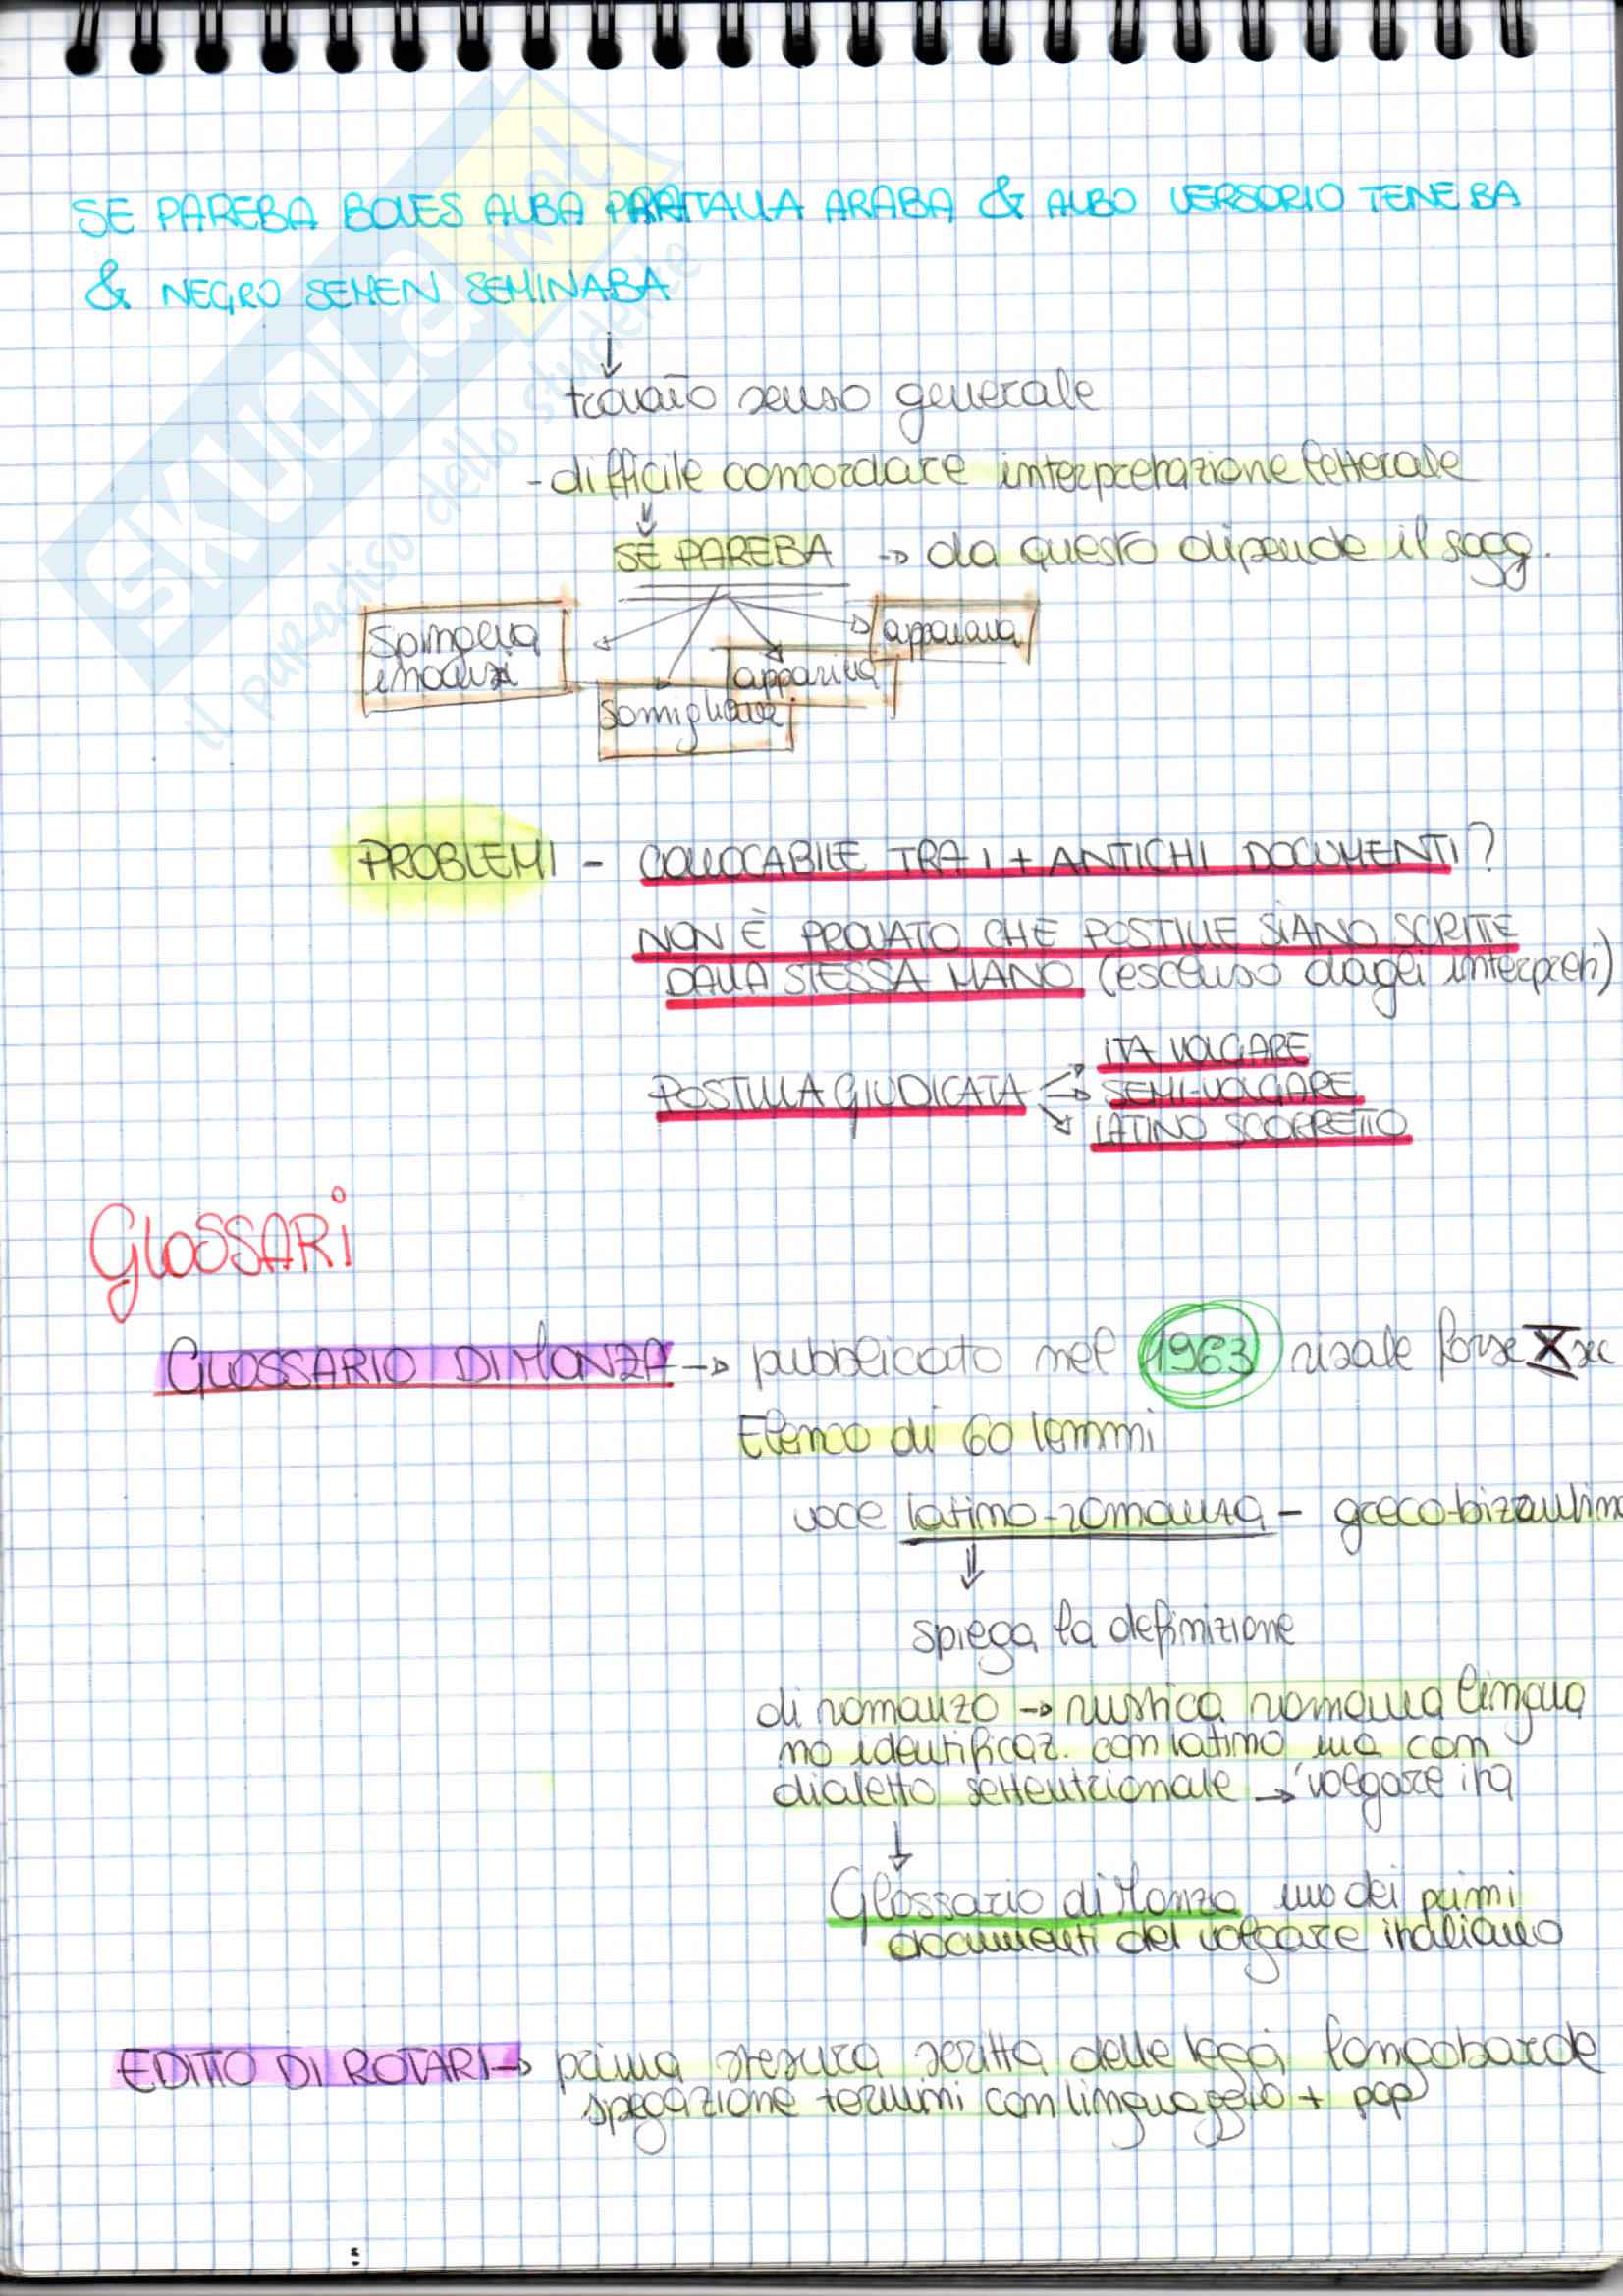 SE PAREBA BOVES ALBA PRATALIA ARABA & ALBO VERSORIO TENEBA
& NEGRO SEMEN SEMINABA
↓
trovato senso generale
- difficile concordare interpretazione letterale
SE PAREBA → da questo dipende il sogg.
spingeva
innanzi
somigliava
appariva
apparava
PROBLEMI - COLLOCABILE TRA I + ANTICHI DOCUMENTI?
NON È PROVATO CHE POSTILLE SIANO SCRITTE
DALLA STESSA MANO (escluso dagli interpreti)
POSTILLA GIUDICATA
ITA VOLGARE
SEMI-VOLGARE
LATINO SCORRETTO
GLOSSARI
GLOSSARIO DI MONZA → pubblicato nel 1963 risale forse X sec
Elenco di 60 lemmi
voce latino-romanza - greco-bizantina
spiega la definizione
di romanzo → rustica romana lingua
no identificaz. con latino ma con
dialetto settentrionale → volgare ita
↓
Glossario di Monza uno dei primi
documenti del volgare italiano
EDITTO DI ROTARI → prima stesura scritta delle leggi longobarde
spegazione termini con linguaggio + pop
SKUOLA.net
il paradiso dello studente